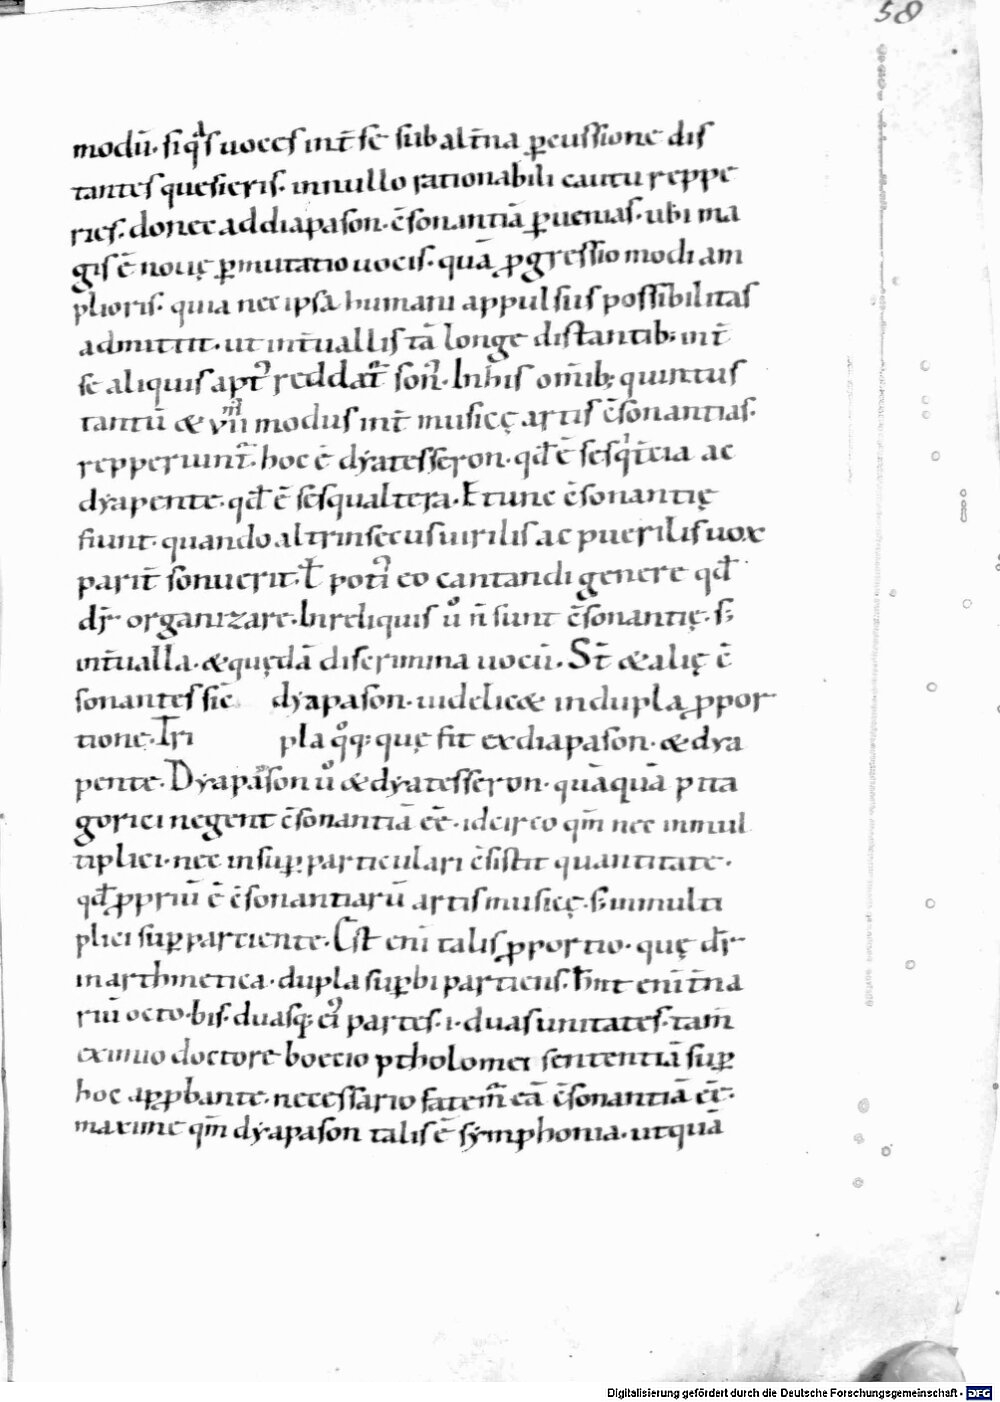 58
modū. siq͛s uoces int̄ se sub alt̄na ꝑcussione dis
tantes quesieris. in nullo rationabili cantu reppe
ries. donec ad diapason. c̄sonantiā ꝑuenias. ubi ma
gis ē nouę ꝑmutatio uocis. quā ꝓgressio modi am
plioris. quia nec ipsa humani appulsus possibilitas
admittit. ut int̄uallis tā longe distantib; int̄
se aliquis apt᾽ reddat᷑ son᾽. In his om̄ib; quintus
tantū & vıı modus int̄ musicę artis c̄sonantias.
repperiunt᷑. hoc ē dẏatesseron. qđ ē sesq̍t̄cia ac
dẏapente. qđ ē sesqualtera. Et tunc c̄sonantię
fiunt. quando altrinsecus uirilis ac puerilis uox
parit̄ sonuerit. ł poti᾽ eo cantandi genere qđ
dr̄ organizare. In reliquis uͦ n̄ sunt c̄sonantię. s;
int̄ualla. & quędā discrimina uocū. St̄ & alię c̄
sonantes sic̄ dẏapason. uidelic& in dupla ꝓpor
tione. Tri pla qͦq; quę fit ex diapason. & dya
pente. Dẏapason uͦ & dẏatesseron. quāquā pita
gorici negent c̄sonantiā ēē. idcirco qm̄ nec in mul
tiplici. nec in suꝑparticulari c̄sistit quantitate.
qđ ꝓpriū ē c̄sonantiarū artis musicę. s; in multi
plici suꝑpartiente. Est eni talis ꝓportio. quę dr̄
in arthmetica. dupla suꝑbi partiens. Hn̄t eni t̄na
riū octo. bis. duasq; ei᾽ partes. i. duas unitates. tam̄
eximio doctore boecio ptholomei sententiā suꝑ
hoc apꝓbante. necessario fatem᷑ eā c̄sonantiā ēē.
maxime qm̄ dẏapason talis ē sẏmphonia. ut quā
Digitalisierung gefördert durch die Deutsche Forschungsgemeinschaft - DFG